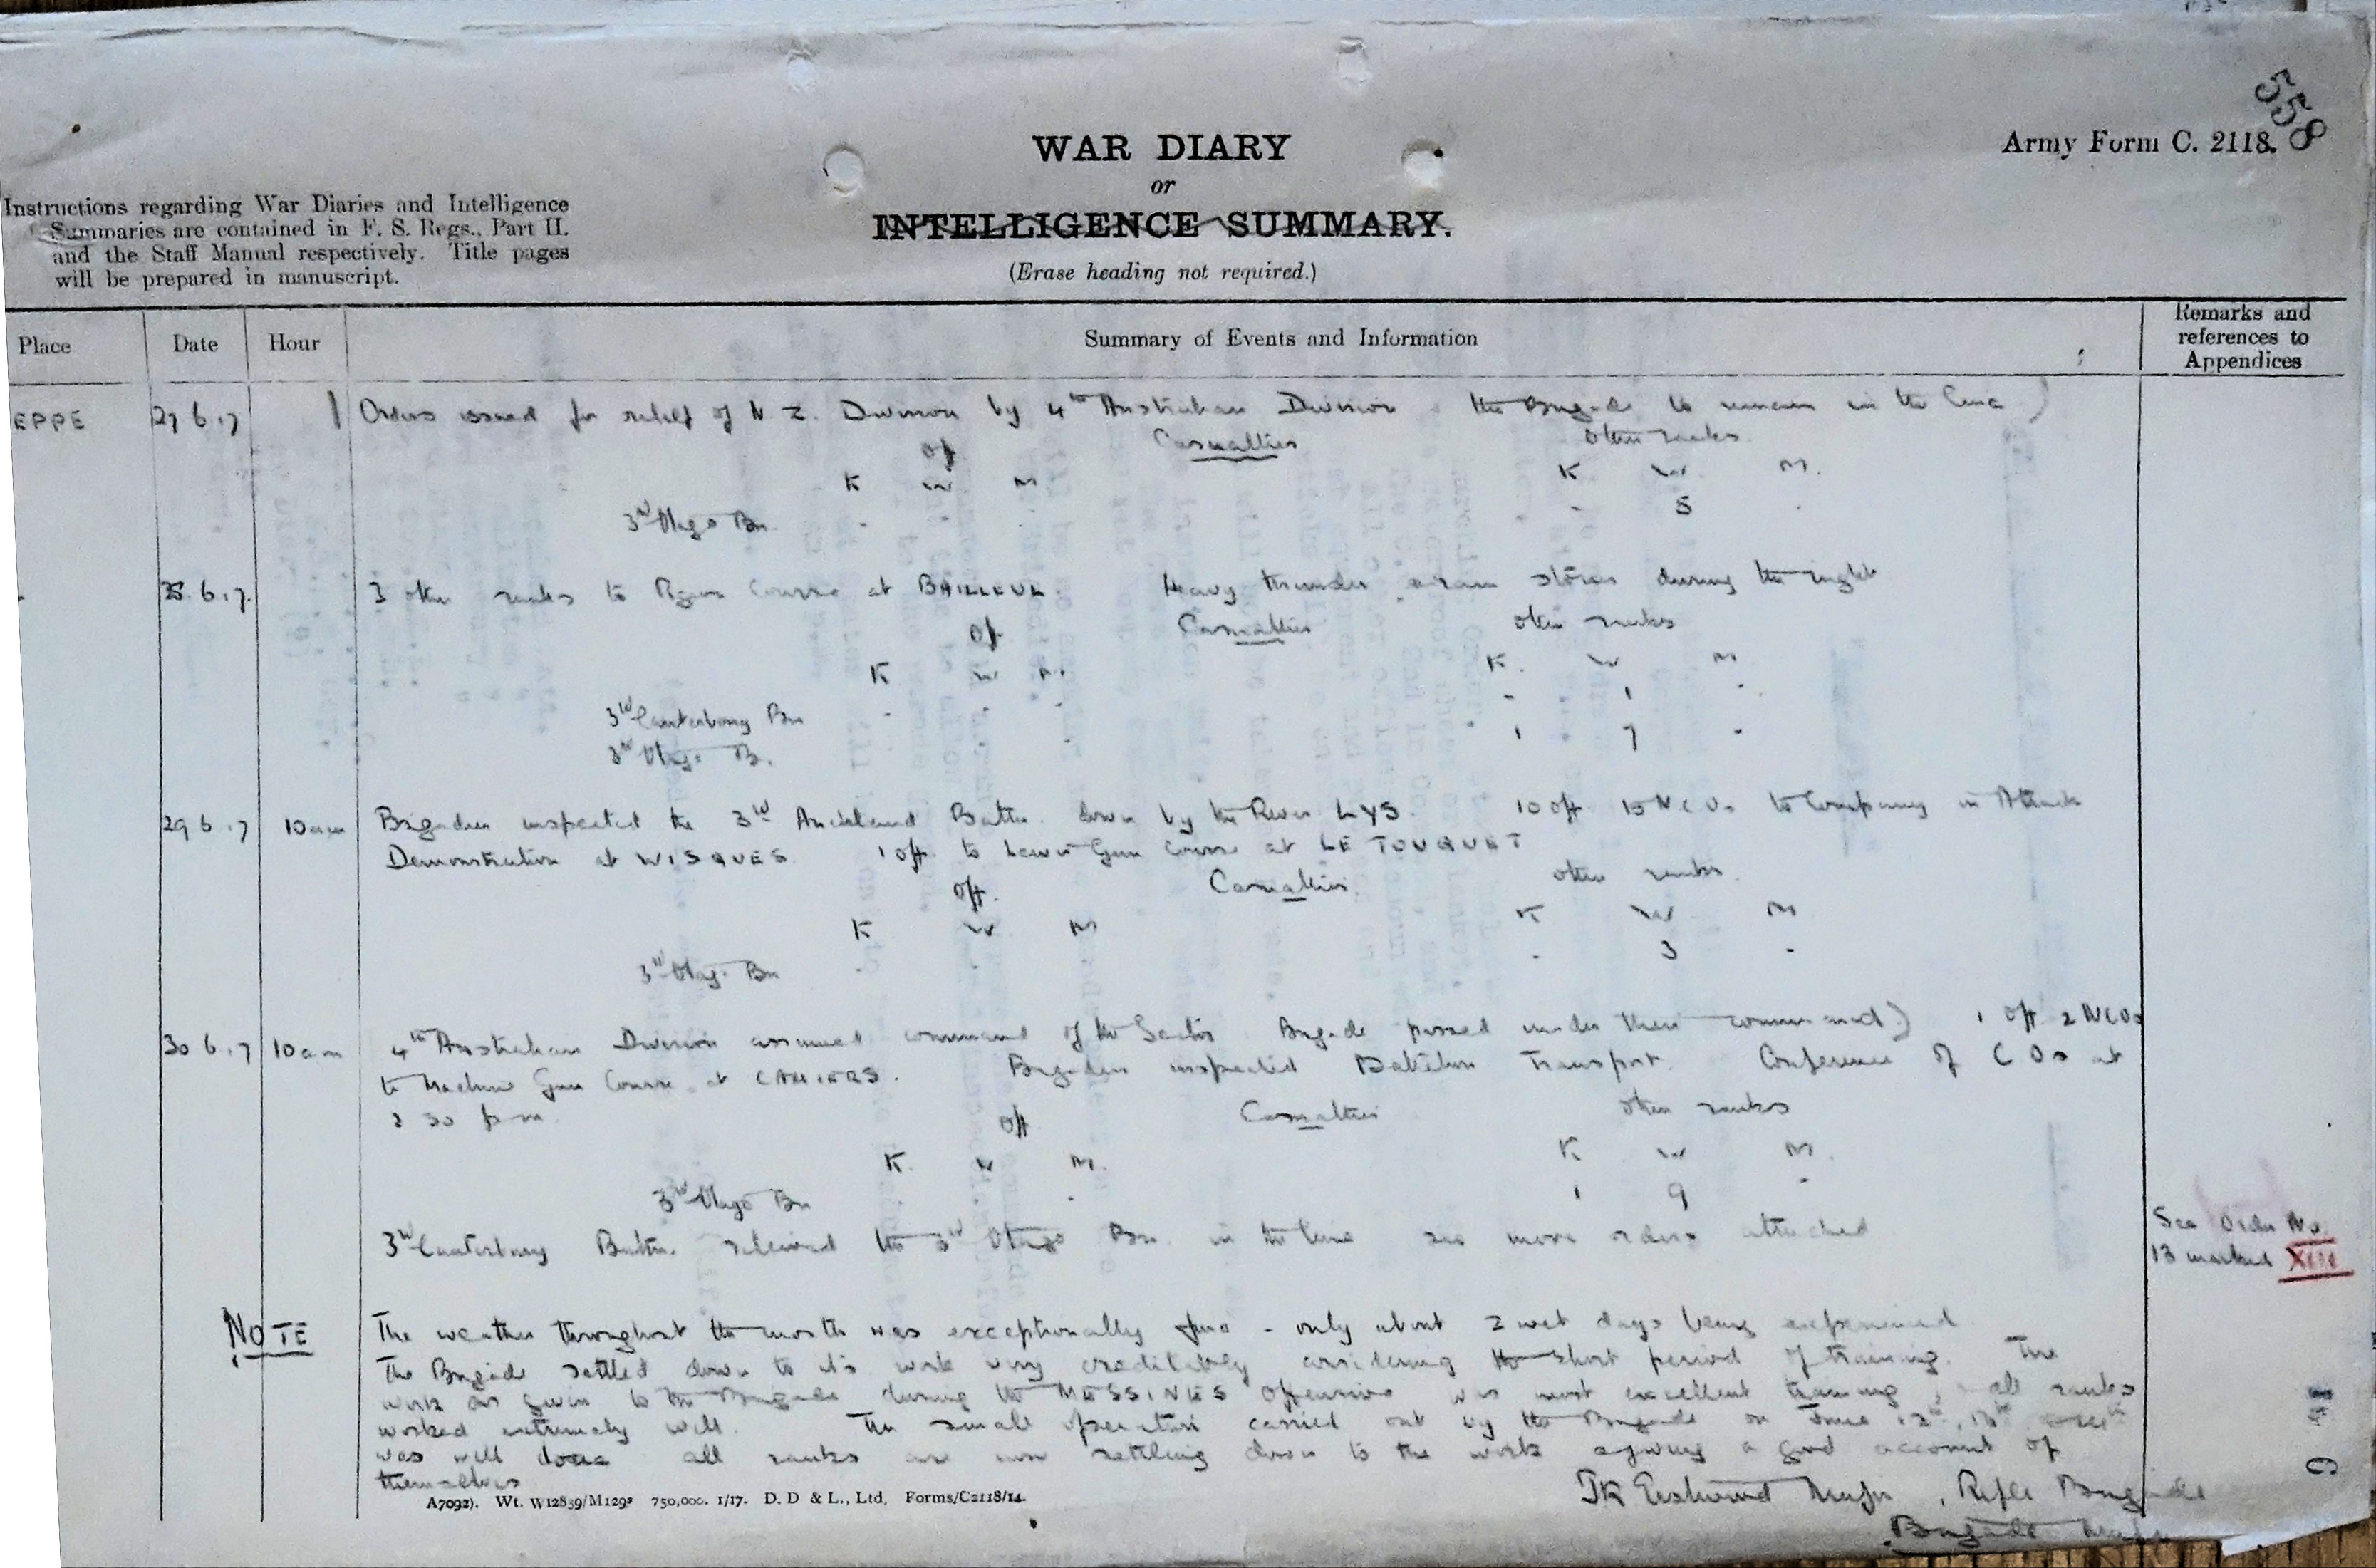 558
Army Form C. 2118.
WAR DIARY
or
INTELLIGENCE SUMMARY.
(Erase heading not required.)
Instructions regarding War Diaries and Intelligence
Summaries are contained in F. S. Regs., Part II.
and the Staff Manual respectively. Title pages
will be prepared in manuscript.
Place Date Hour Summary of Events and Information Remarks and references to Appendices
EPPE 27 6.17 Orders issued for relief of N.Z. Division by 4th Australian Division the Brigade to remain in the line)
Off Casualties other ranks
K W M K W M.
3rd Otago Bn. - - - - 5 -
28.6.17. 3 other ranks to Course at BAILLEUL. Heavy thunder & rain storm during the night
Off Casualties other ranks
K W M. K. W M
3rd Canterbury Bn - - - - 1 -
3rd Otago B. - 1 7 -
29 6.17 10am Brigadier inspected the 3rd Auckland Battn. down by the River LYS. 10 off 15 NCOs to Company in Attack
Demonstration at WISQUES. 1 off to Lewis Gun Course at LE TOUQUET
Off. Casualties. other ranks.
K W M K W M
3rd Otago Bn - - - 3 -
30 6.17 10am 4th Australian Division assumed command of the Sector Brigade passed under their command) 1 Off 2 NCOs
to Machine Gun Course at CAMIERS. Brigadier inspected Battalion Transport. Conference of C Os at
30 pm
Off Casualties other ranks
K. W M. K W M.
3rd Otago Bn - 1 9 -
3rd Canterbury Battn. relieved the 3rd Otago Bn. in the line see move orders attached
See Order No.
13 marked XIII
NOTE The weather throughout the month was exceptionally fine - only about 2 wet days being experienced
The Brigade settled down to it's work very creditably considering the short period of training. The
work as given to the Brigade during the MESSINES Offensive was most excellent training, all ranks
worked extremely well. The small operation carried out by the Brigade on June
was well done all ranks are now settling down to the work & giving a good account of
themselves
A7092). Wt. W12839/M1293 750,000. 1/17. D. D & L., Ltd, Forms/C2118/14.
TR Eastwood Major, Rifle Brigade
Brigade Major